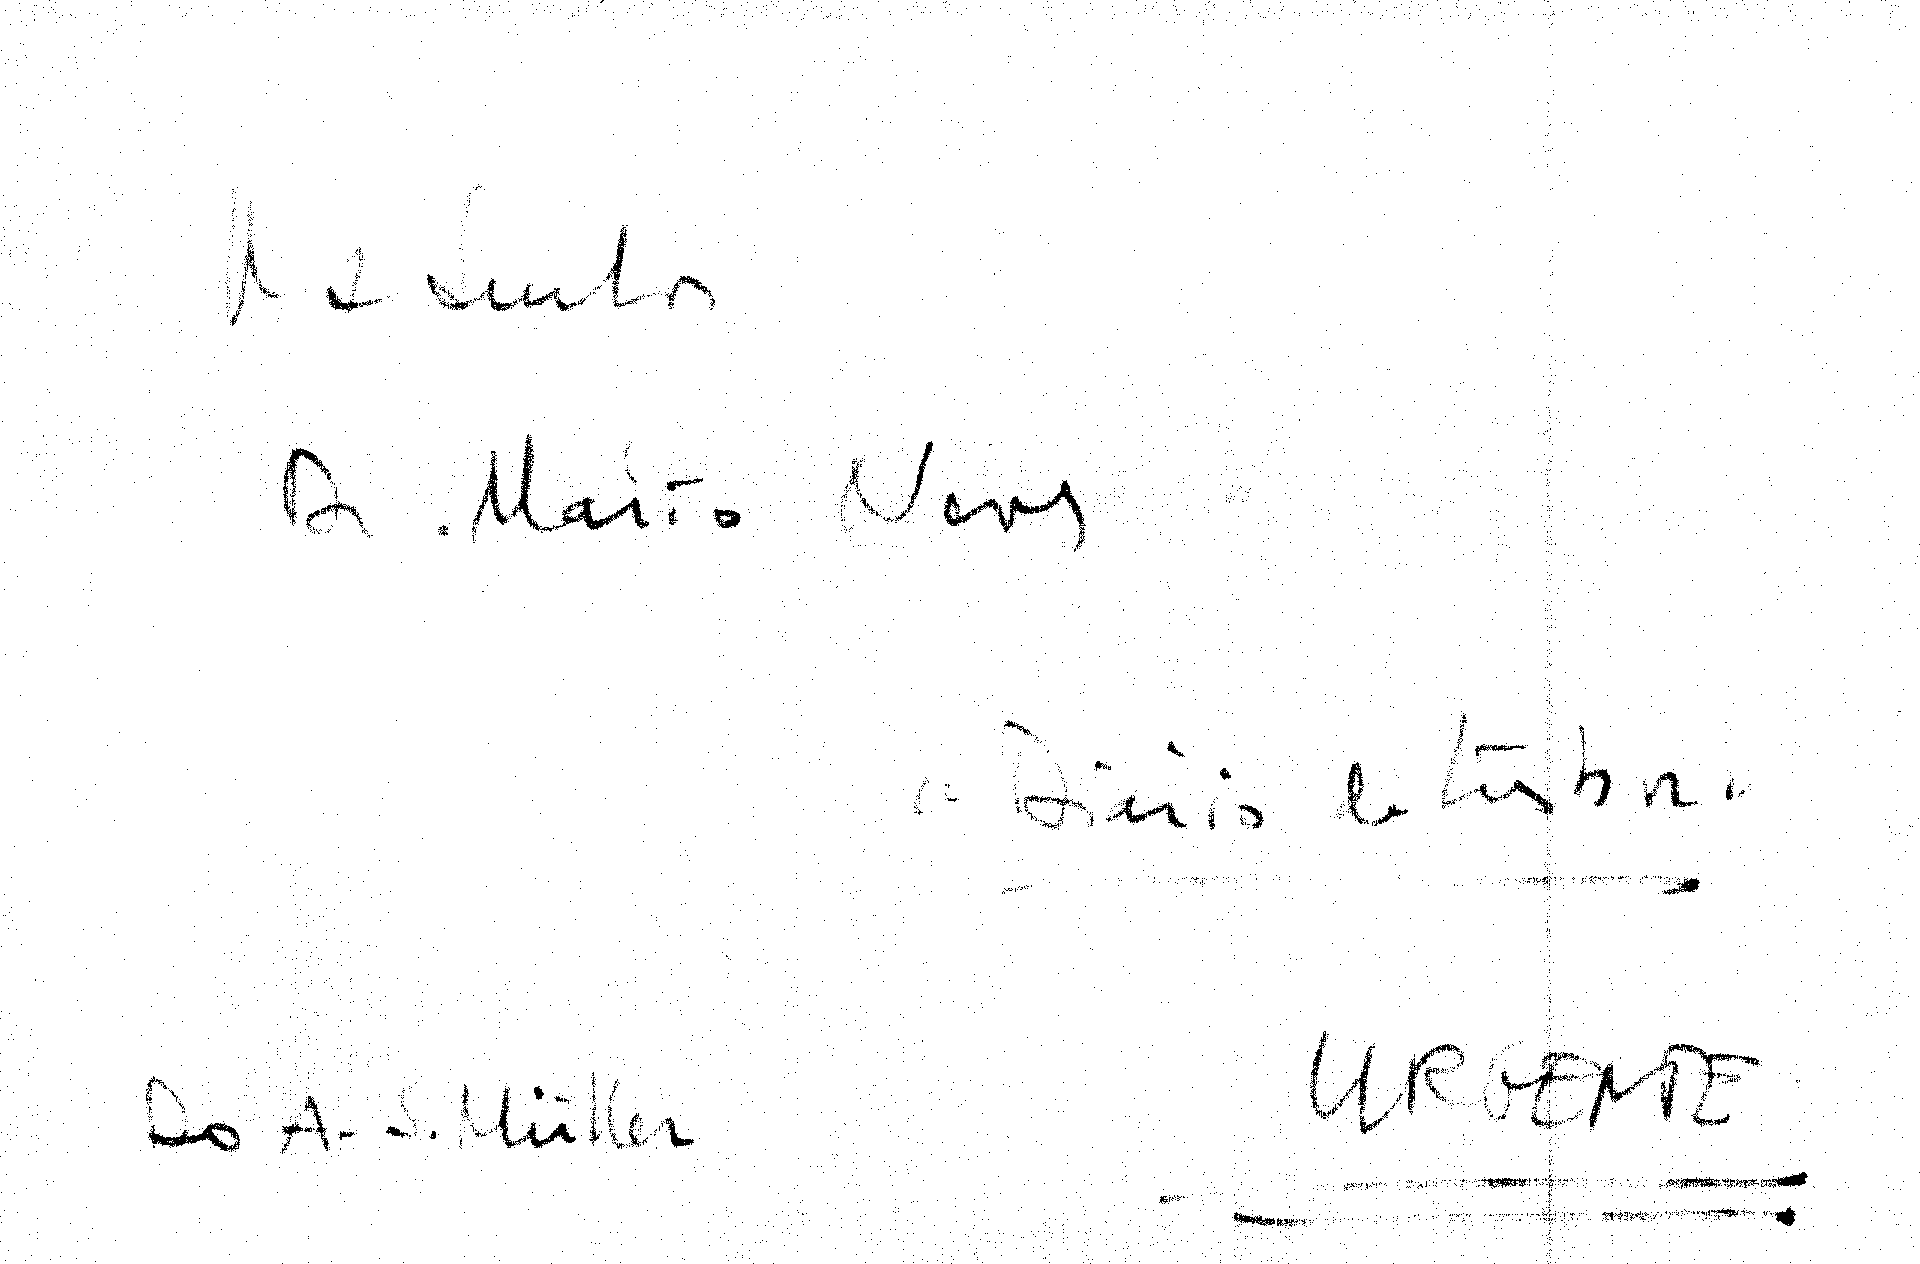 Dr. Mário Neves
"Diário de Lisboa"
URGENTE
Do A. S. Müller